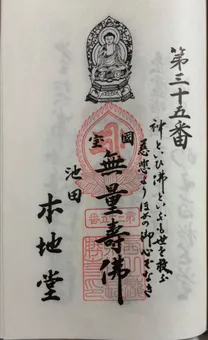 第三十五番
神といひ佛といふも世を救ふ
慈悲よりほかの御心もなき
國宝
無量壽佛
池田
本地堂